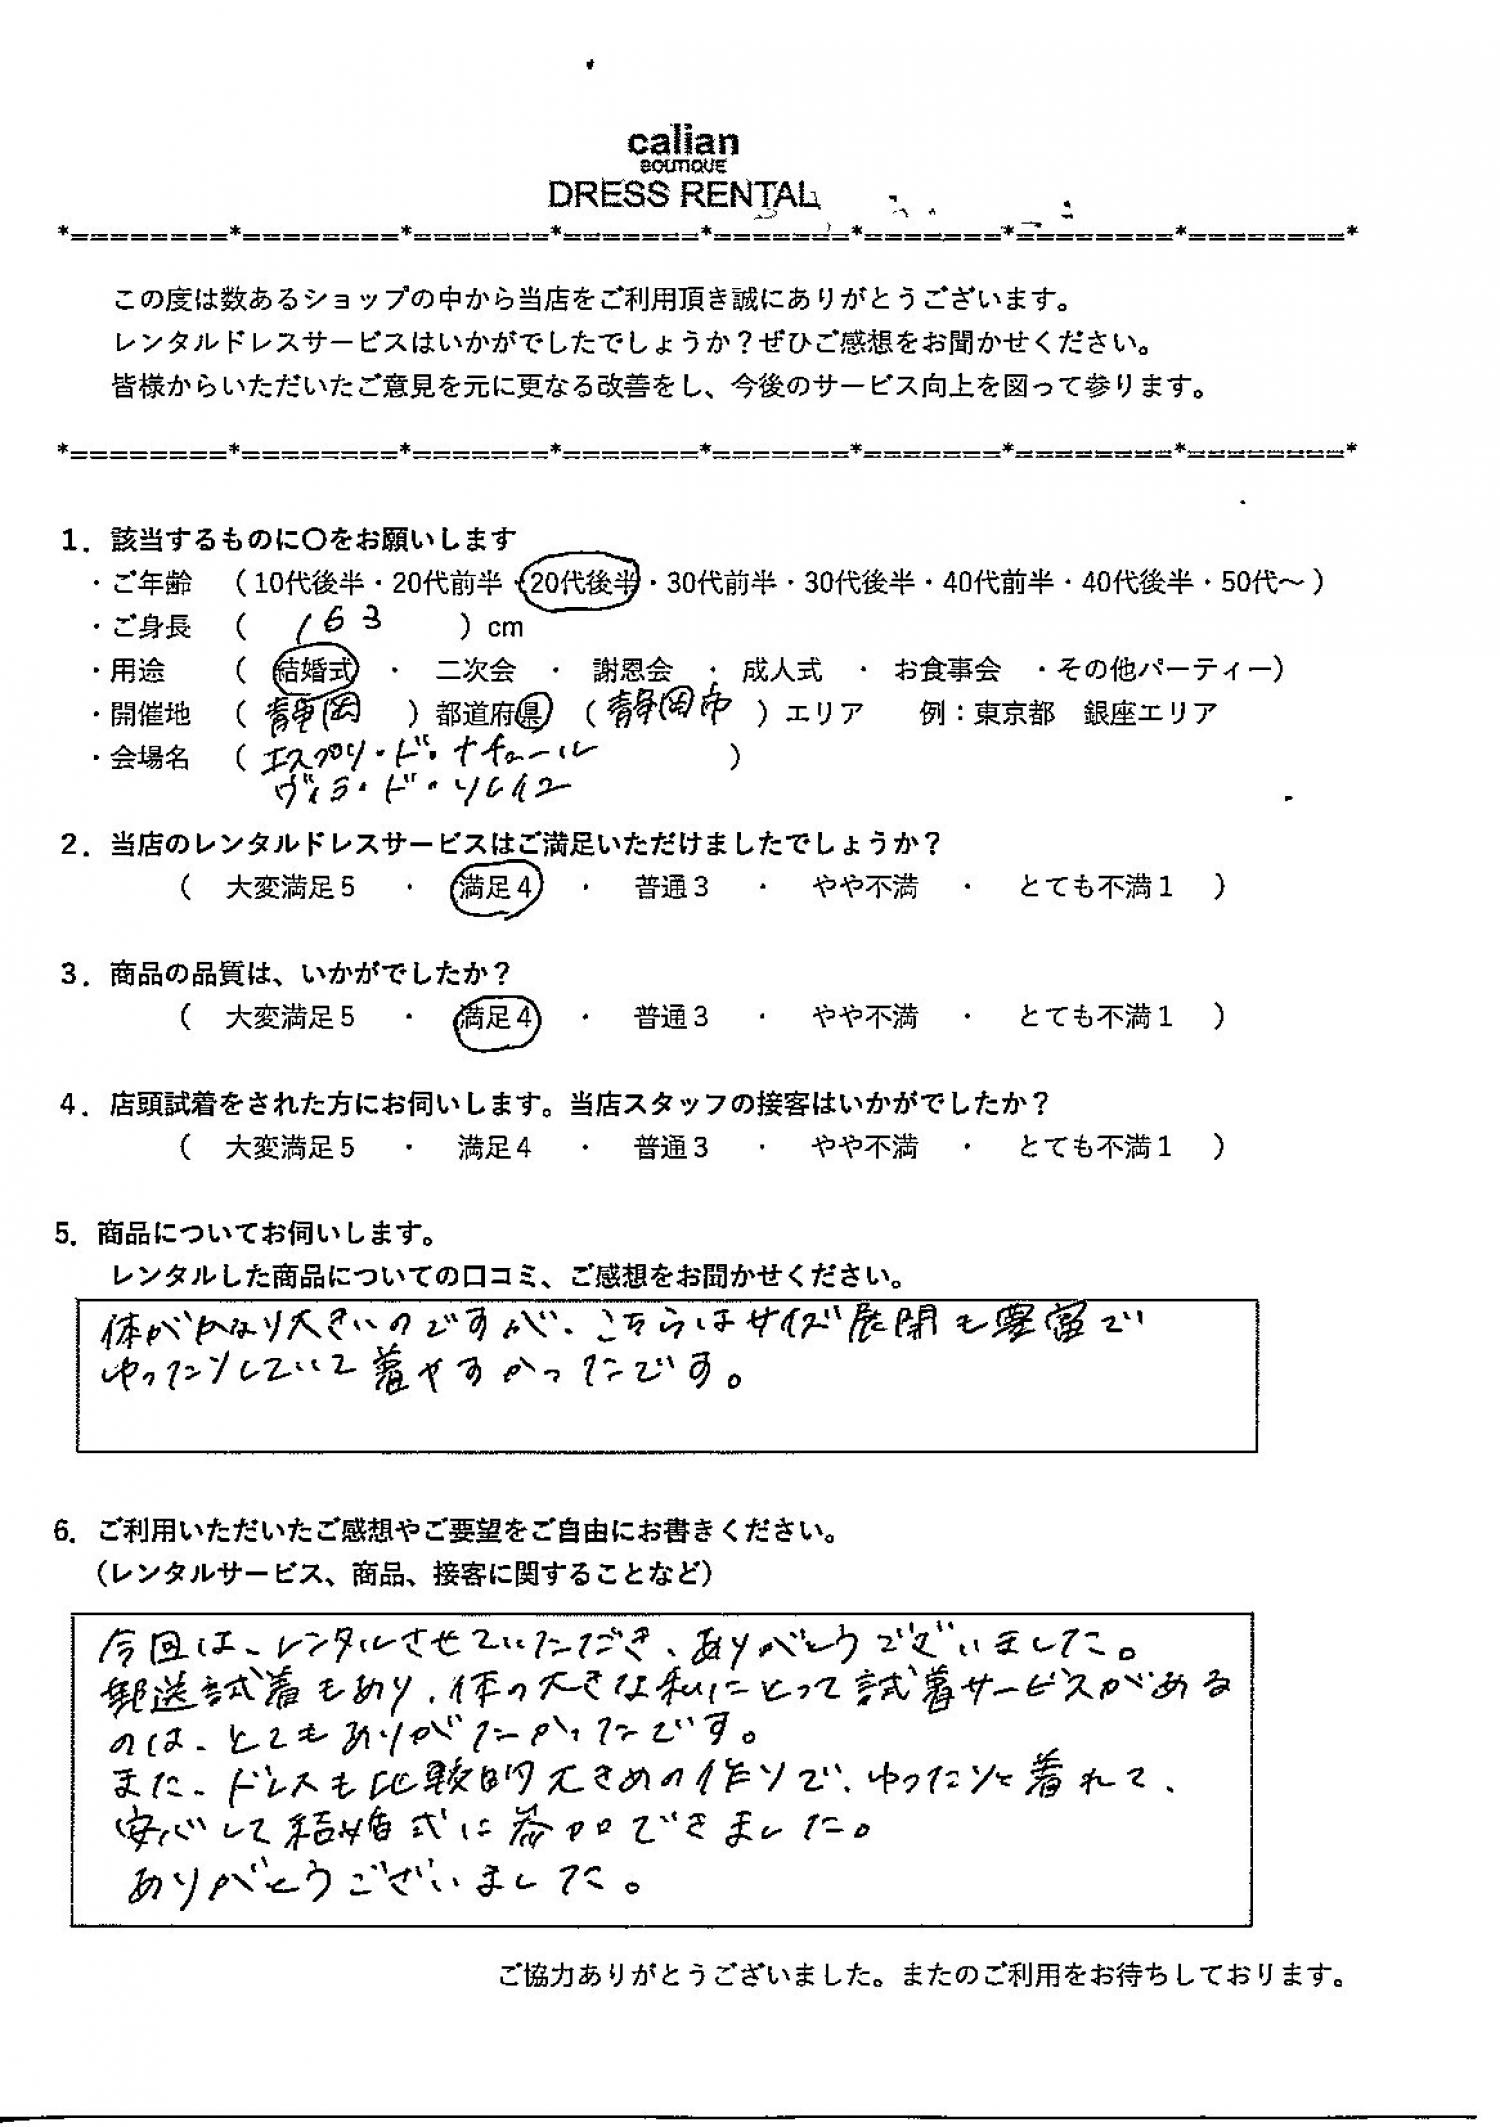 calian
BOUTIQUE
DRESS RENTAL
*========*========*=======*=======*=======*=======*========*========*
この度は数あるショップの中から当店をご利用頂き誠にありがとうございます。
レンタルドレスサービスはいかがでしたでしょうか？ぜひご感想をお聞かせください。
皆様からいただいたご意見を元に更なる改善をし、今後のサービス向上を図って参ります。
*========*========*=======*=======*=======*=======*========*========*
1．該当するものに〇をお願いします
・ご年齢 （10代後半・20代前半・20代後半・30代前半・30代後半・40代前半・40代後半・50代～）
・ご身長 （ 163 ）cm
・用途 （ 結婚式 ・ 二次会 ・ 謝恩会 ・ 成人式 ・ お食事会 ・その他パーティー）
・開催地 （ 静岡 ）都道府県 （ 静岡市 ）エリア 例：東京都 銀座エリア
・会場名 （ エスプリ・ド・ナチュール ）
ヴィラ・ド・ソレイユ
2．当店のレンタルドレスサービスはご満足いただけましたでしょうか？
（ 大変満足５ ・ 満足４ ・ 普通３ ・ やや不満 ・ とても不満１ ）
3．商品の品質は、いかがでしたか？
（ 大変満足５ ・ 満足４ ・ 普通３ ・ やや不満 ・ とても不満１ ）
4．店頭試着をされた方にお伺いします。当店スタッフの接客はいかがでしたか？
（ 大変満足５ ・ 満足４ ・ 普通３ ・ やや不満 ・ とても不満１ ）
5．商品についてお伺いします。
レンタルした商品についての口コミ、ご感想をお聞かせください。
体がかなり大きいのですが、こちらはサイズ展開も豊富で
ゆったりしていて着やすかったです。
6．ご利用いただいたご感想やご要望をご自由にお書きください。
（レンタルサービス、商品、接客に関することなど）
今回は、レンタルさせていただき、ありがとうございました。
郵送試着もあり、体の大きな私にとって試着サービスがある
のは、とてもありがたかったです。
また、ドレスも比較的大きめの作りで、ゆったりと着れて、
安心して結婚式に参加できました。
ありがとうございました。
ご協力ありがとうございました。またのご利用をお待ちしております。